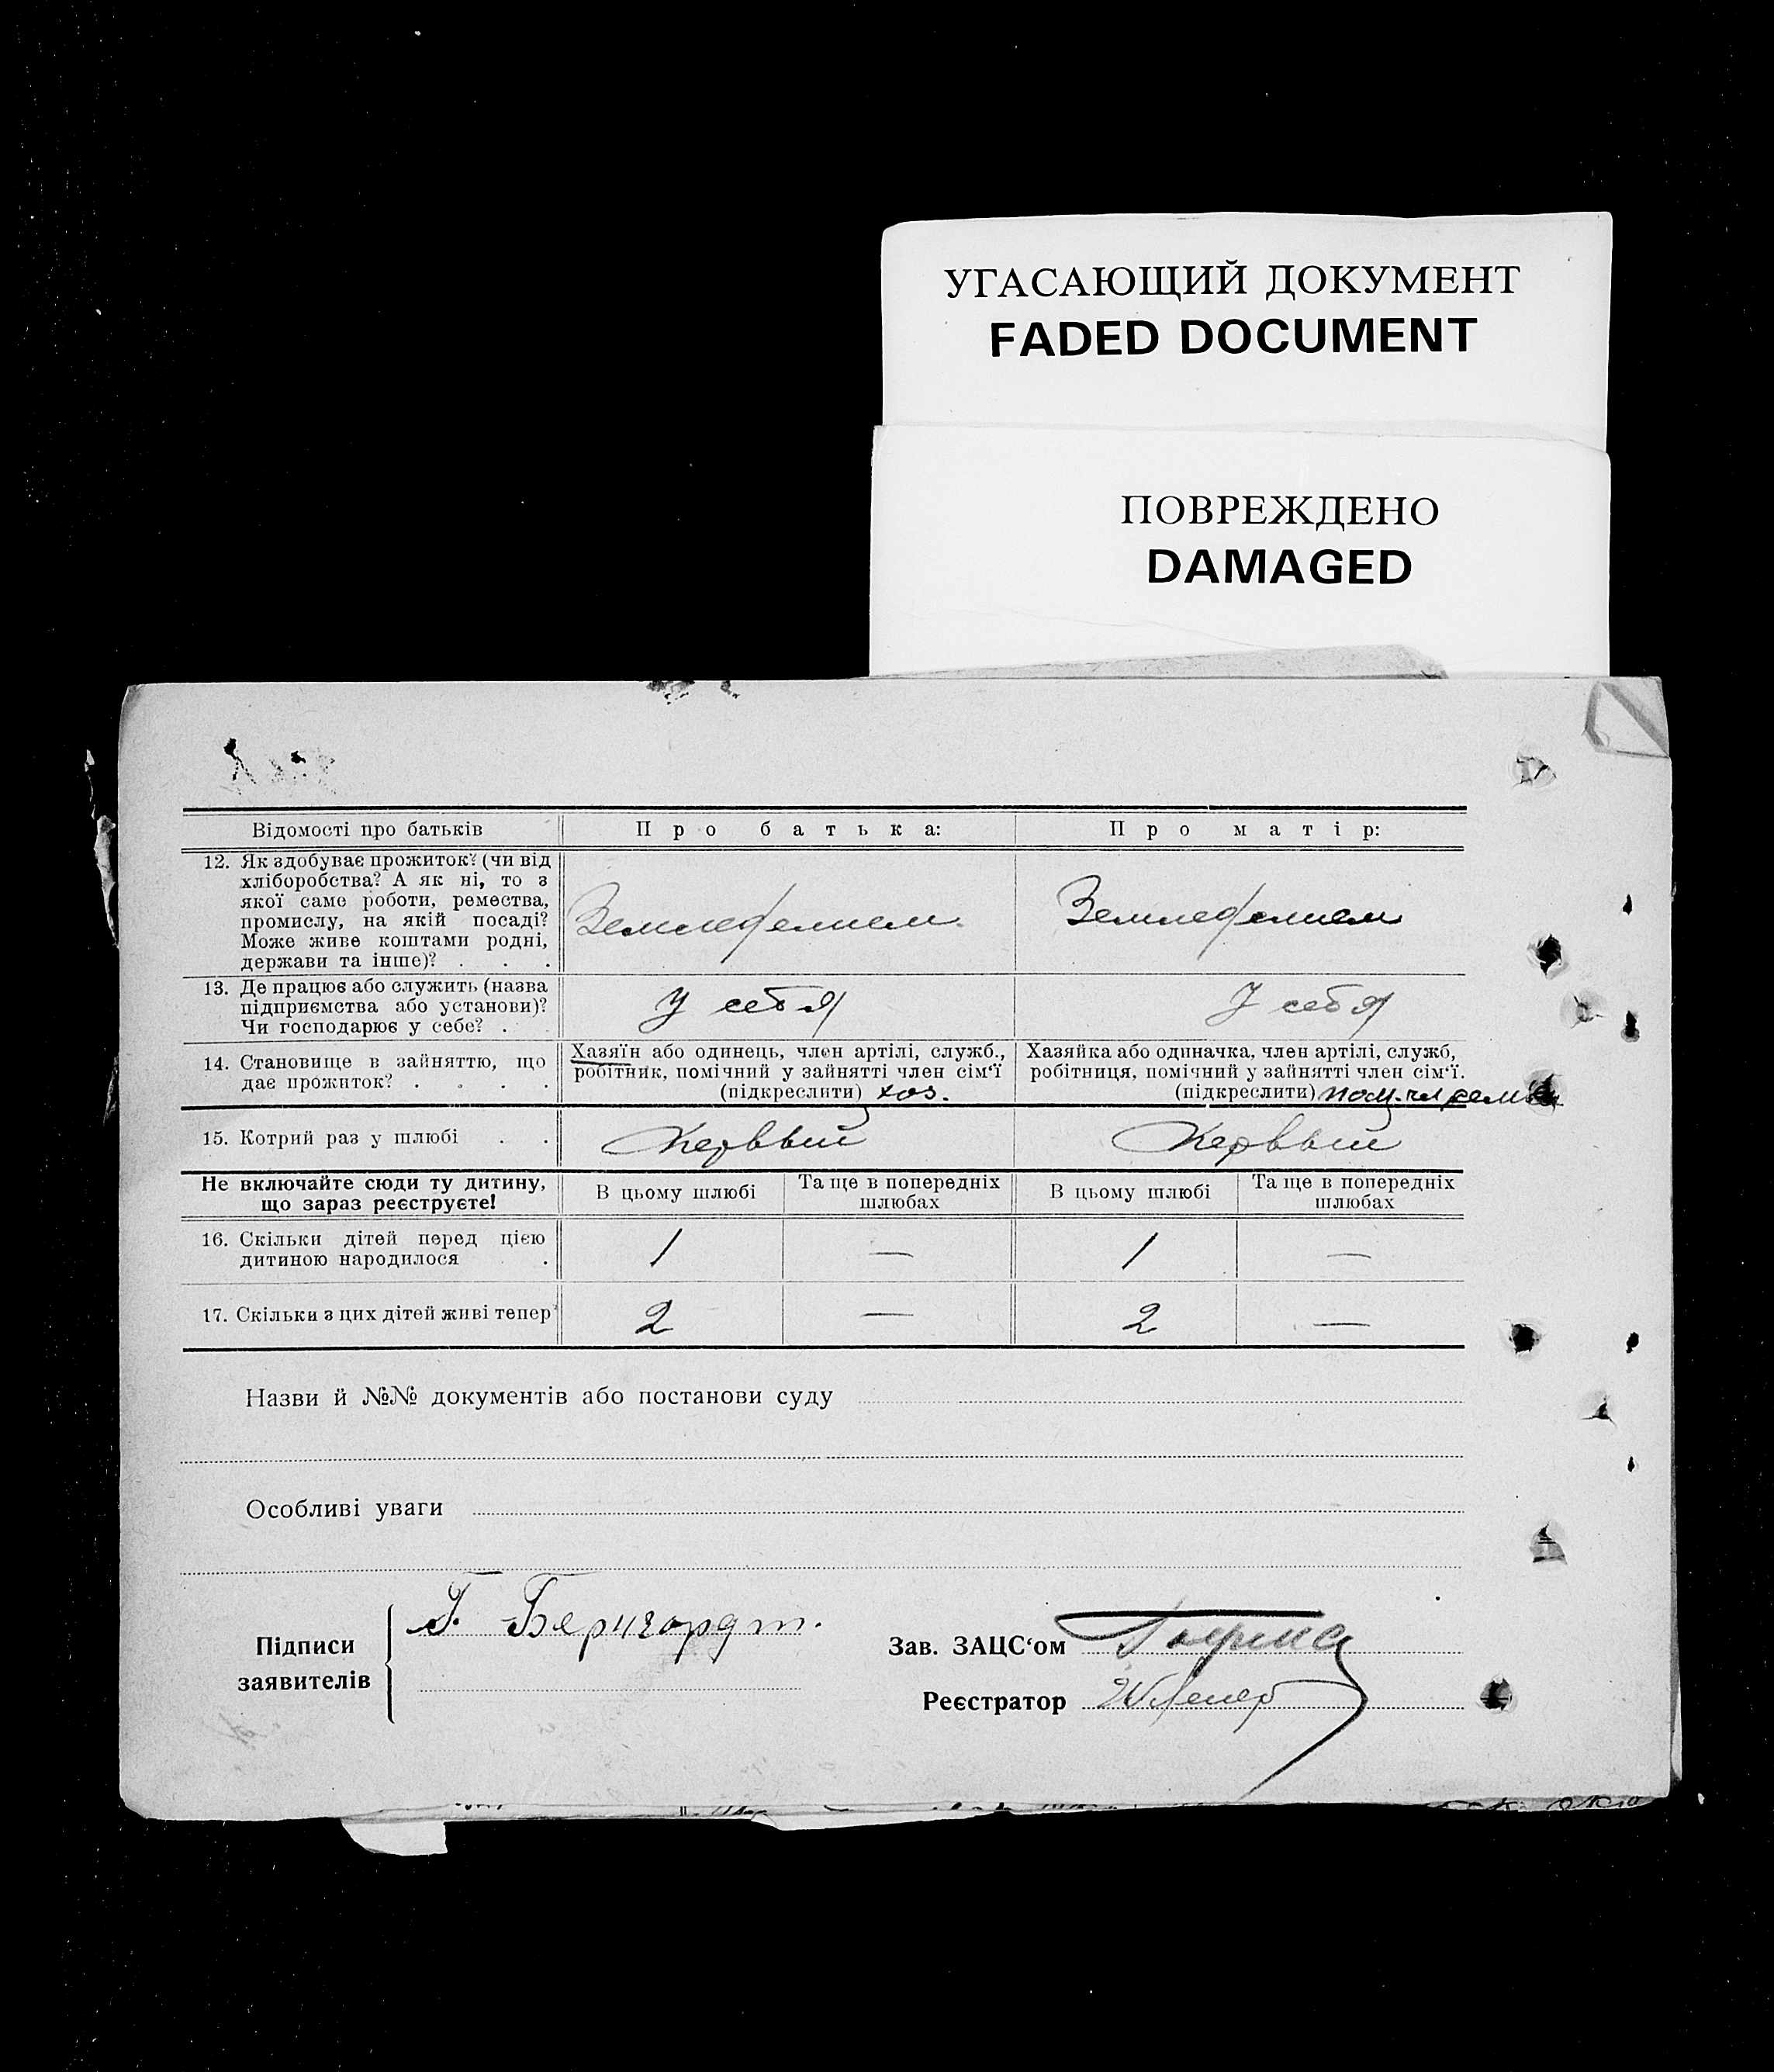 УГАСАЮЩИЙ ДОКУМЕНТ
FADED DOCUMENT
ПОВРЕЖДЕНО
DAMAGED
Відомості про батьків
Про батька:
Про матір:
12. Як здобуває прожиток? (чи від
хліборобства? А як ні, то з
якої саме роботи, ремества,
промислу, на якій посаді?
Може живе коштами родні,
держави та інше)? . . .
Земледелием.
Земледелием
13. Де працює або служить (назва
підприємства або установи)?
Чи господарює у себе? .
У себя
У себя
14. Становище в зайняттю, що
дає прожиток? . . . .
Хазяїн або одинець, член артілі, служб.,
робітник, помічний у зайнятті член сім‘ї
(підкреслити) хоз.
Хазяйка або одиначка, член артілі, служб,
робітниця, помічний у зайнятті член сім‘ї.
(підкреслити) пом. чл семьи
15. Котрий раз у шлюбі . .
Первый
Первый
Не включайте сюди ту дитину,
що зараз реєструєте!
В цьому шлюбі
Та ще в попередніх
шлюбах
В цьому шлюбі
Та ще в попередніх
шлюбах
16. Скільки дітей перед цією
дитиною народилося .
1
—
1
—
17. Скільки з цих дітей живі тепер
2
—
2
—
Назви й №№ документів або постанови суду
Особливі уваги
Підписи
заявителів
Г. Бернгардт.
Зав. ЗАЦС‘ом
Реєстратор